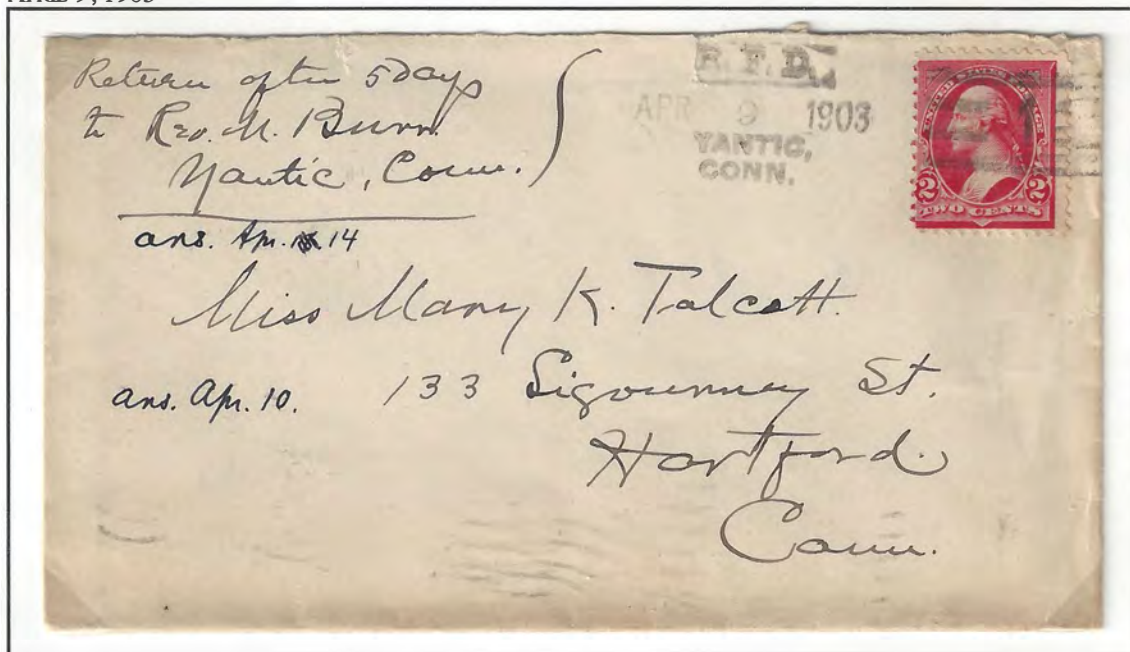 Return after 5 Days
to Rev. M. Burr
Yantic, Conn.
ans. Apr. 14
R.F.D.
APR 9 1903
YANTIC,
CONN.
UNITED STATES POSTAGE
2 2
TWO CENTS
Miss Mary K. Talcott.
ans. Apr. 10. 133 Sigourney St.
Hartford.
Conn.